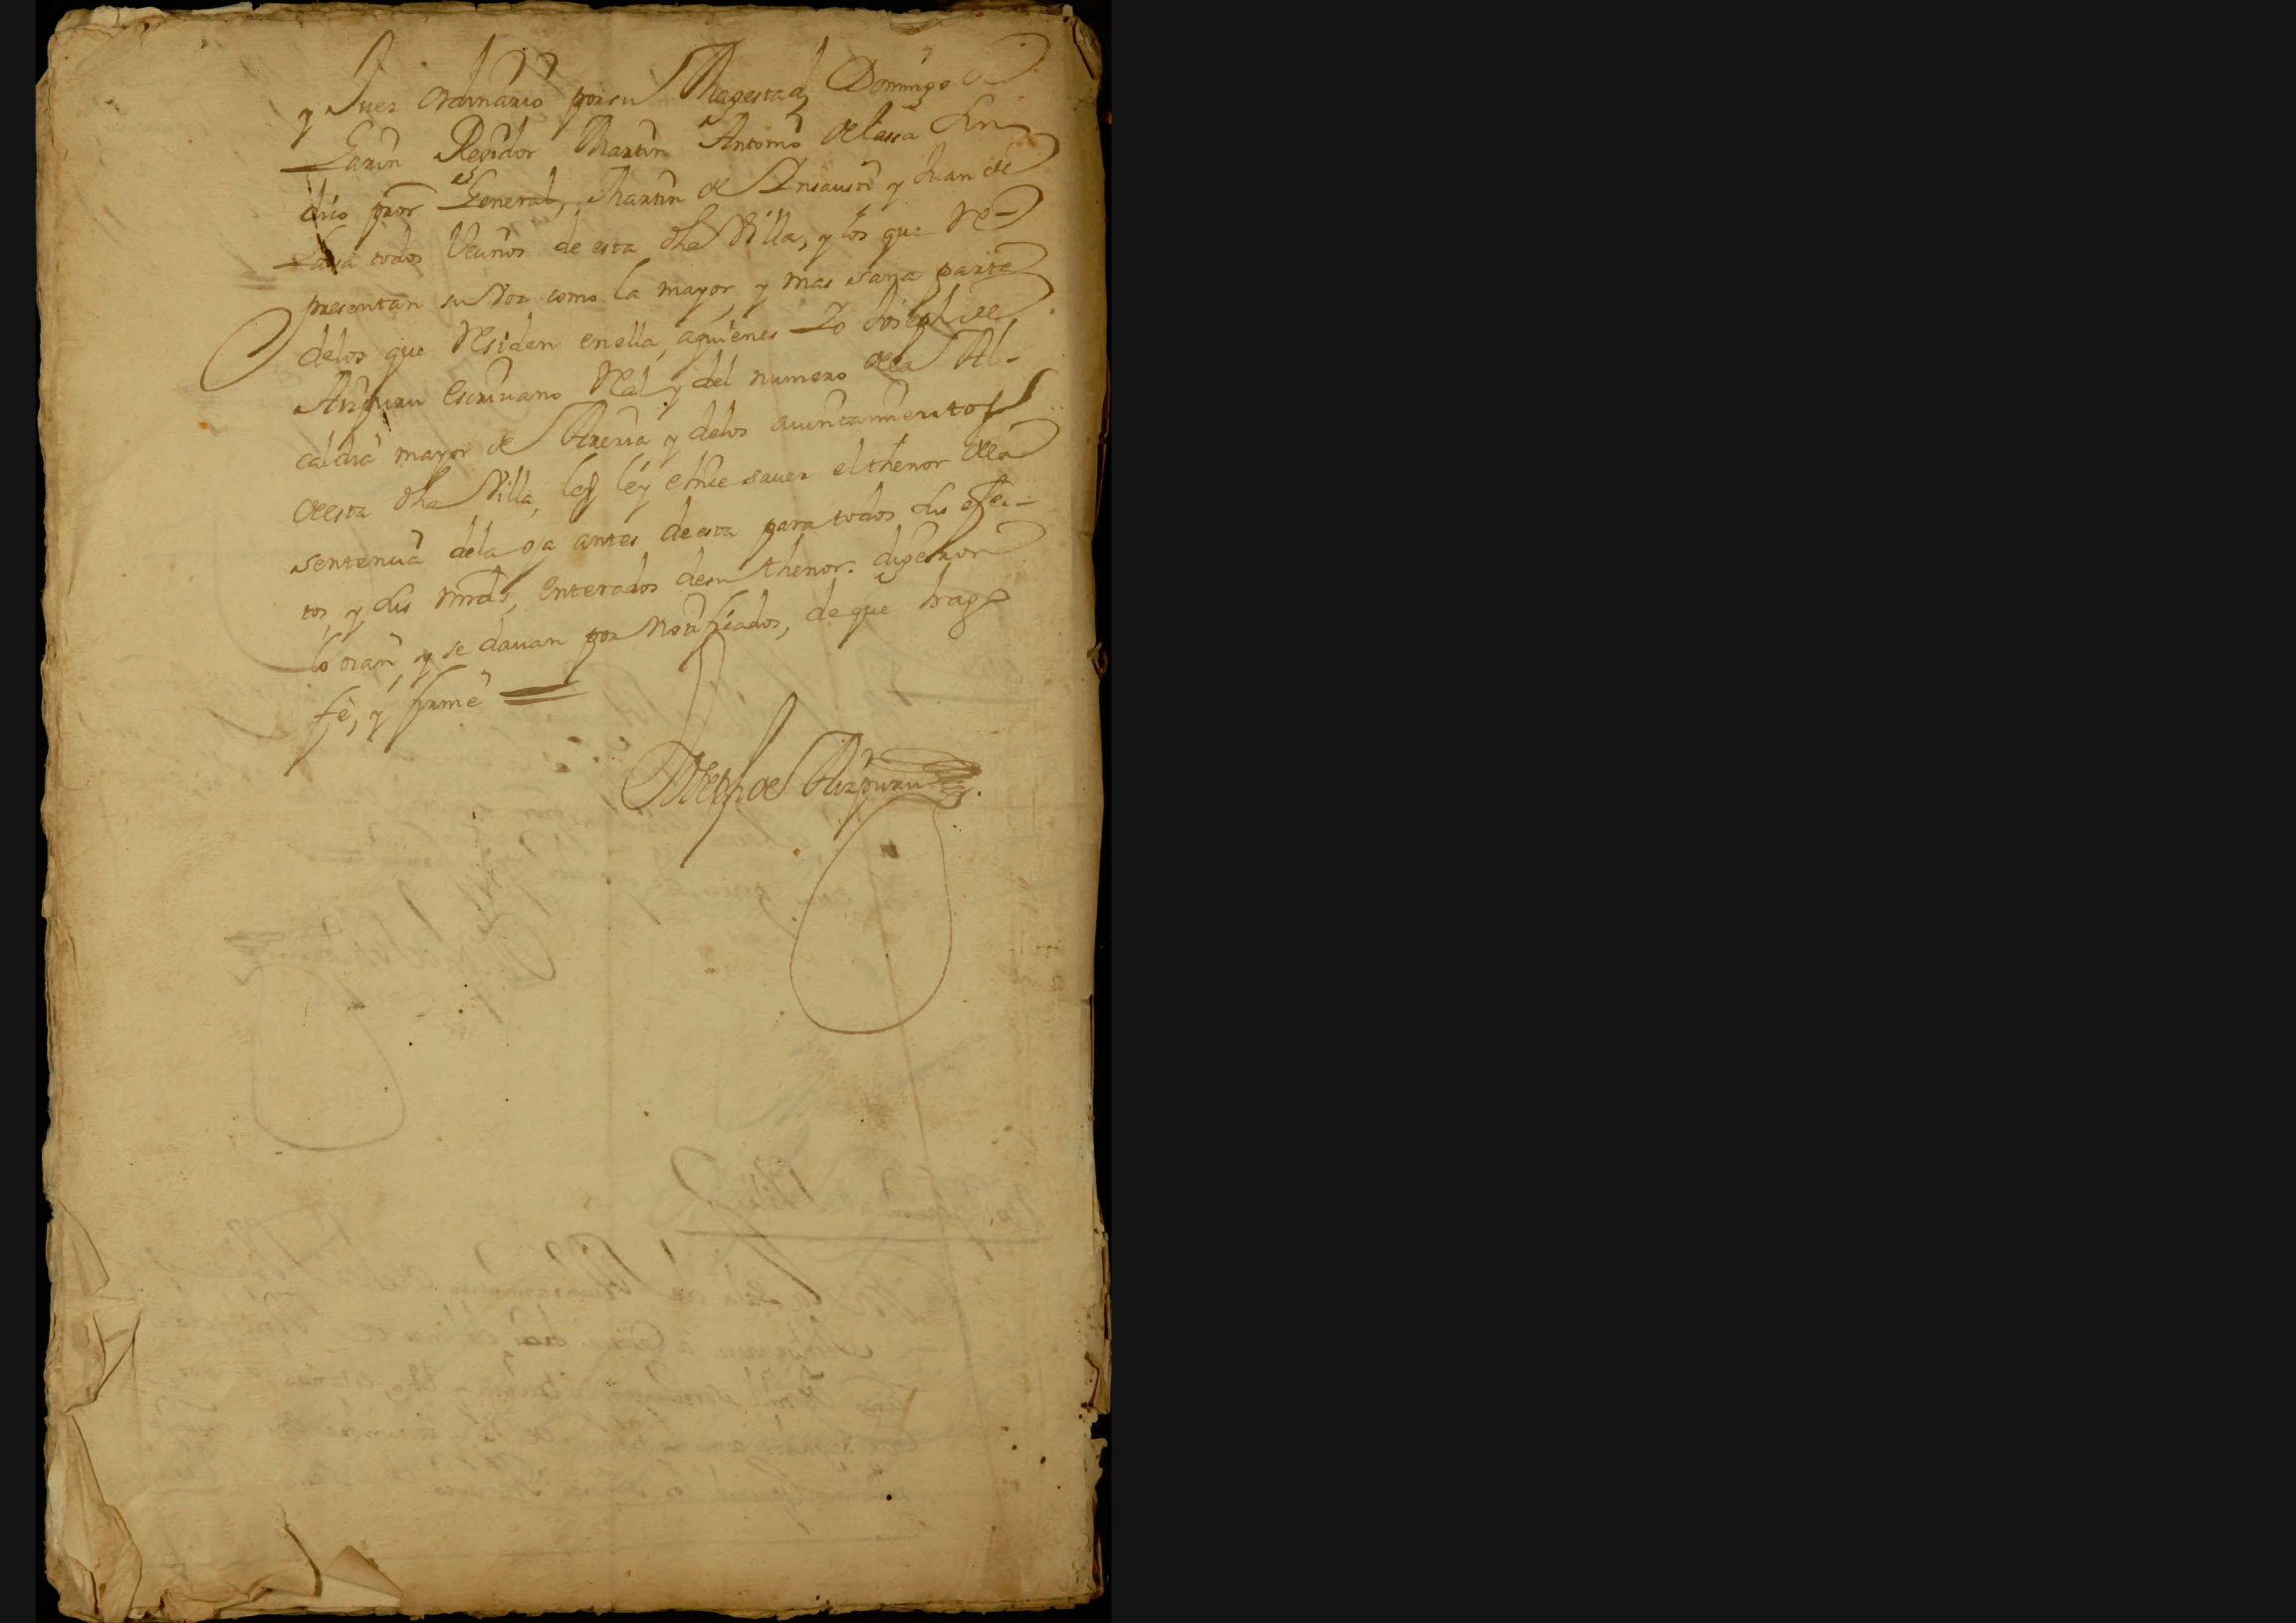 y Juez ordinario por su Magestad, Domingo de
Garin Regidor Martin Antonio de Lassa Sin
dico pror General, Martin de Insausti y Juan de
Lassa todos Vecinos de esta dha Villa, y los que Re-
presentan su Voz como la mayor, y mas sana parte
delos que Residen enella, aquienes Yo Joseph de
Aizpuru escriuano Real y del numero dela Al-
caldia mayor de Areria y delos aiuntamientos
de esta dha Villa, les ley e hice sauer el thenor dela
sentencia dela oja antes de esta para todos sus efec-
tos, y sus mrds, enterados desu thenor. digeron
lo oian, y se dauan por notificados, de que hago
fe, y firme
Joseph de Aizpuru